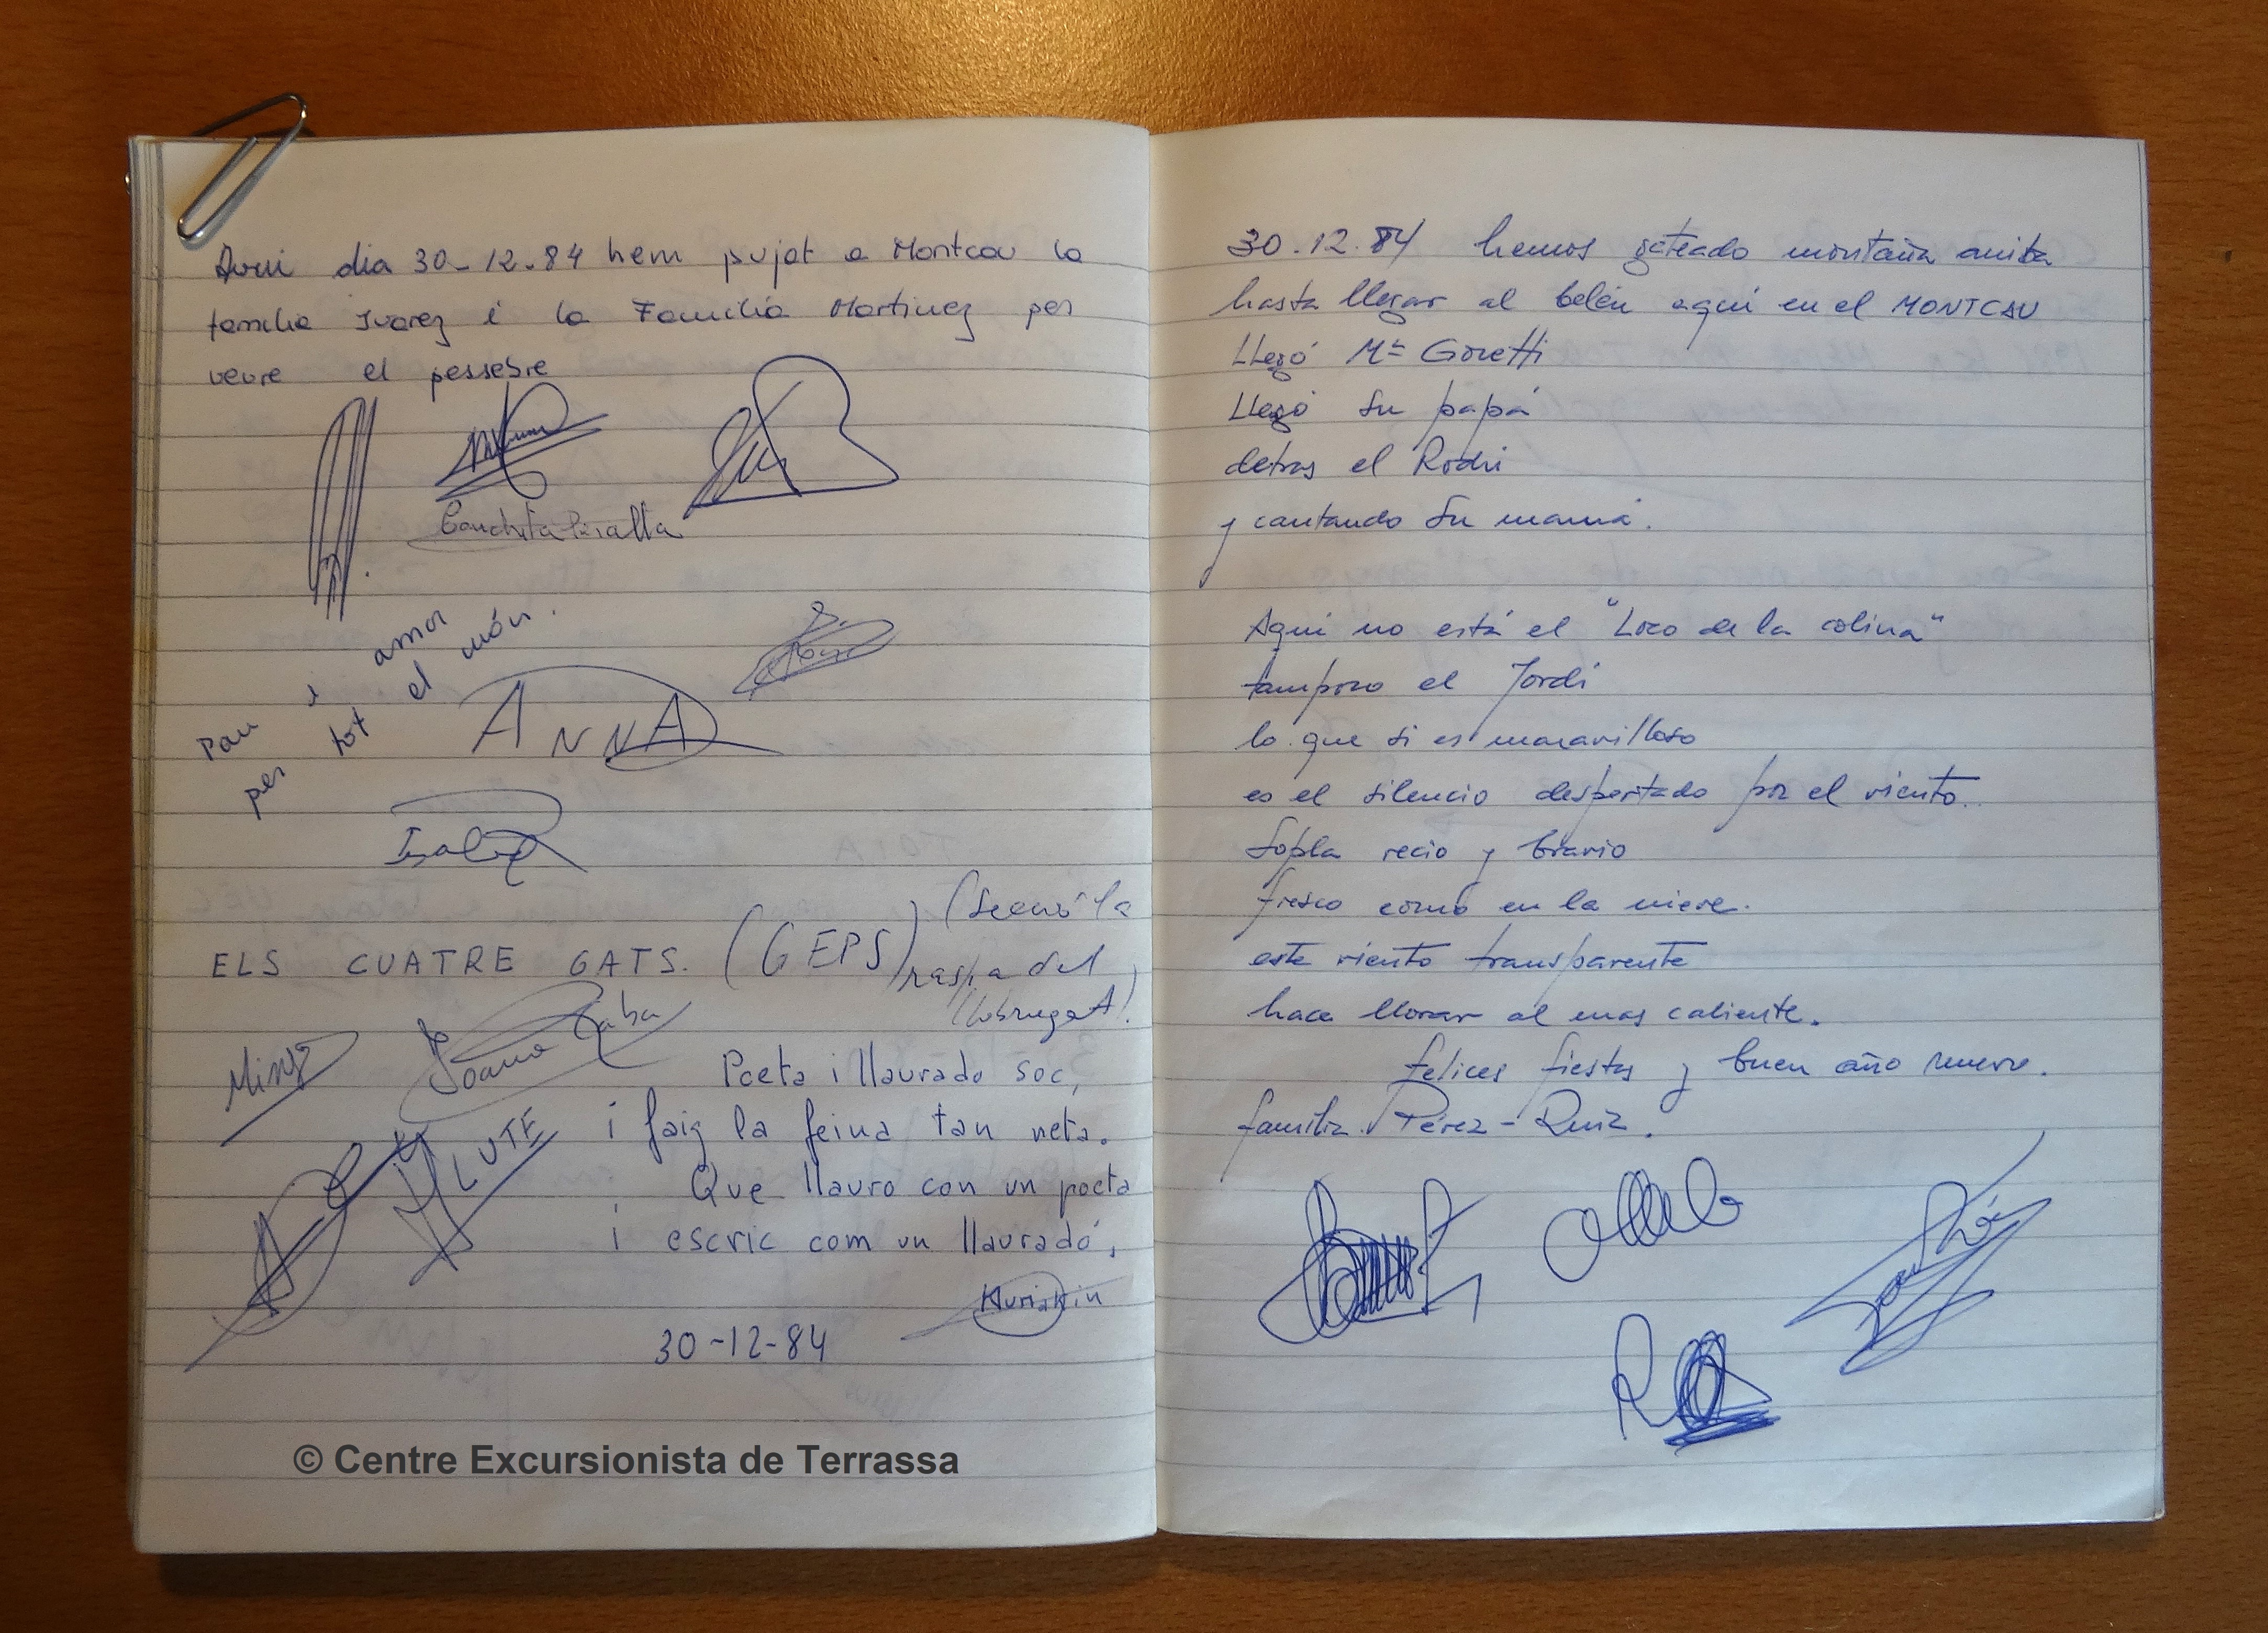 Avui dia 30-12-84 hem pujat a Montcau la
familia Ivarez i la Familia Martinez per
veure el pessebre
Conchita Piralla
Pau i amor
per tot el món.
ANNA
Isabel
ELS CUATRE GATS. (GEPS)
(Secció la
raspa del
llobregat)
Mingo
Joana
ALUTE
Poeta i llaurado soc,
i faig la feina tan neta.
Que llauro con un poeta
i escric com un llauradó,
Kuriakin
30-12-84
© Centre Excursionista de Terrassa
30.12.84 hemos gateado montaña arriba
hasta llegar al belén aquí en el MONTCAU
LLegó Mª Goretti
LLegó su papá
detras el Rodri
y cantando su mamá.
Aquí no está el "Loco de la colina"
tampoco el Jordi
lo que si es maravilloso
es el silencio despertado por el viento..
Sopla recio y bravio
fresco como en la nieve.
este viento transparente
hace llorar al mas caliente.
felices fiestas y buen año nuevo.
familia Pérez-Ruiz.